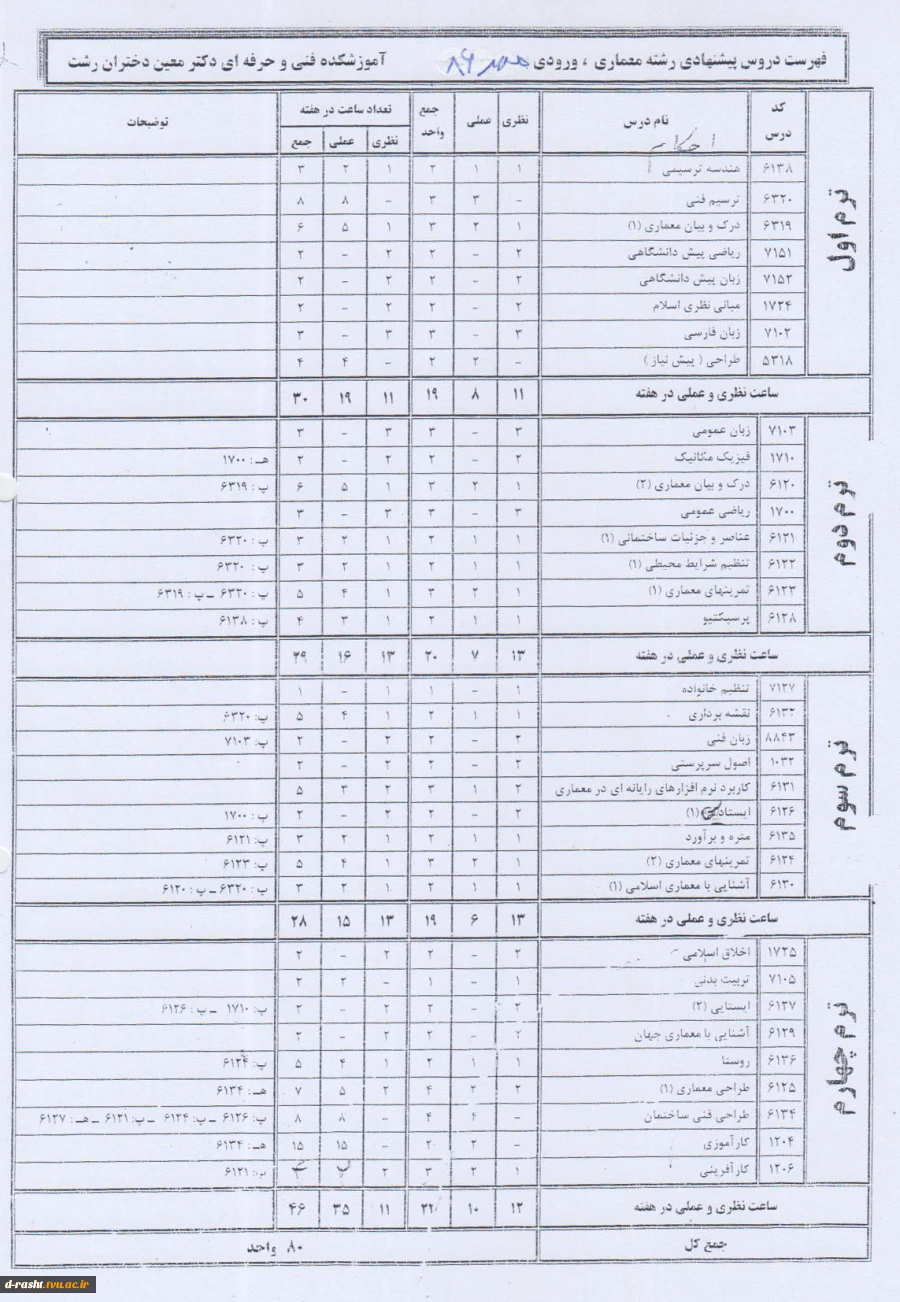 فهرست دروس پیشنهادی رشته معماری ، ورودی مهر ۸۶ آموزشکده فنی و حرفه ای دکتر معین دختران رشت
کد درس نام درس نظری عملی جمع واحد تعداد ساعت در هفته توضیحات
نظری عملی جمع
ترم اول
۶۱۳۸ هندسه ترسیمی ۱ ۱ ۲ ۱ ۲ ۳
۶۳۲۰ ترسیم فنی - ۳ ۳ - ۸ ۸
۶۳۱۹ درک و بیان معماری (۱) ۱ ۲ ۳ ۱ ۵ ۶
۷۱۵۱ ریاضی پیش دانشگاهی ۲ - ۲ ۲ - ۲
۷۱۵۲ زبان پیش دانشگاهی ۲ - ۲ ۲ - ۲
۱۷۲۴ مبانی نظری اسلام ۲ - ۲ ۲ - ۲
۷۱۰۲ زبان فارسی ۳ - ۳ ۳ - ۳
۵۳۱۸ طراحی ( پیش نیاز ) - ۲ ۲ - ۴ ۴
ساعت نظری و عملی در هفته ۱۱ ۸ ۱۹ ۱۱ ۱۹ ۳۰
ترم دوم
۷۱۰۳ زبان عمومی ۳ - ۳ ۳ - ۳
۱۷۱۰ فیزیک مکانیک ۲ - ۲ ۲ - ۲ هـ : ۱۷۰۰
۶۱۲۰ درک و بیان معماری (۲) ۱ ۲ ۳ ۱ ۵ ۶ پ : ۶۳۱۹
۱۷۰۰ ریاضی عمومی ۳ - ۳ ۳ - ۳
۶۱۲۱ عناصر و جزئیات ساختمانی (۱) ۱ ۱ ۲ ۱ ۲ ۳ پ : ۶۳۲۰
۶۱۲۲ تنظیم شرایط محیطی (۱) ۱ ۱ ۲ ۱ ۲ ۳ پ : ۶۳۲۰
۶۱۲۳ تمرینهای معماری (۱) ۱ ۲ ۳ ۱ ۴ ۵ پ : ۶۳۲۰ ـ پ : ۶۳۱۹
۶۱۲۸ پرسپکتیو ۱ ۱ ۲ ۱ ۳ ۴ پ : ۶۱۳۸
ساعت نظری و عملی در هفته ۱۳ ۷ ۲۰ ۱۳ ۱۶ ۲۹
ترم سوم
۷۱۲۷ تنظیم خانواده ۱ - ۱ ۱ - ۱
۶۱۳۲ نقشه برداری ۱ ۱ ۲ ۱ ۴ ۵ پ: ۶۳۲۰
۸۸۴۳ زبان فنی ۲ - ۲ ۲ - ۲ پ: ۷۱۰۳
۱۰۳۲ اصول سرپرستی ۲ - ۲ ۲ - ۲
۶۱۳۱ کاربرد نرم افزارهای رایانه ای در معماری ۲ ۱ ۳ ۲ ۳ ۵
۶۱۲۶ ایستایی (۱) ۲ - ۲ ۲ - ۲ پ : ۱۷۰۰
۶۱۳۵ متره و برآورد ۱ ۱ ۲ ۱ ۲ ۳ پ: ۶۱۲۱
۶۱۲۴ تمرینهای معماری (۲) ۱ ۲ ۳ ۱ ۴ ۵ پ: ۶۱۲۳
۶۱۳۰ آشنایی با معماری اسلامی (۱) ۱ ۱ ۲ ۱ ۲ ۳ پ : ۶۳۲۰ ـ پ : ۶۱۲۰
ساعت نظری و عملی در هفته ۱۳ ۶ ۱۹ ۱۳ ۱۵ ۲۸
ترم چهارم
۱۷۲۵ اخلاق اسلامی ۲ - ۲ ۲ - ۲
۷۱۰۵ تربیت بدنی - ۱ ۱ - ۲ ۲
۶۱۲۷ ایستایی (۲) ۲ - ۲ ۲ - ۲ پ: ۱۷۱۰ ـ پ : ۶۱۲۶
۶۱۲۹ آشنایی با معماری جهان ۲ - ۲ ۲ - ۲
۶۱۳۶ روستا ۱ ۱ ۲ ۱ ۴ ۵ پ: ۶۱۲۴
۶۱۲۵ طراحی معماری (۱) ۲ ۲ ۴ ۲ ۵ ۷ هـ : ۶۱۳۴
۶۱۳۴ طراحی فنی ساختمان - ۴ ۴ - ۸ ۸ پ: ۶۱۲۶ ـ پ: ۶۱۲۴ ـ پ: ۶۱۲۱ ـ هـ : ۶۱۲۷
۱۲۰۴ کارآموزی - ۲ ۲ - ۱۵ ۱۵ هـ : ۶۱۳۴
۱۲۰۶ کارآفرینی ۱ ۲ ۳ ۲ پ: ۶۱۲۱
ساعت نظری و عملی در هفته ۱۲ ۱۰ ۲۲ ۱۱ ۳۵ ۴۶
جمع کل ۸۰ واحد
d-rasht.tvu.ac.ir